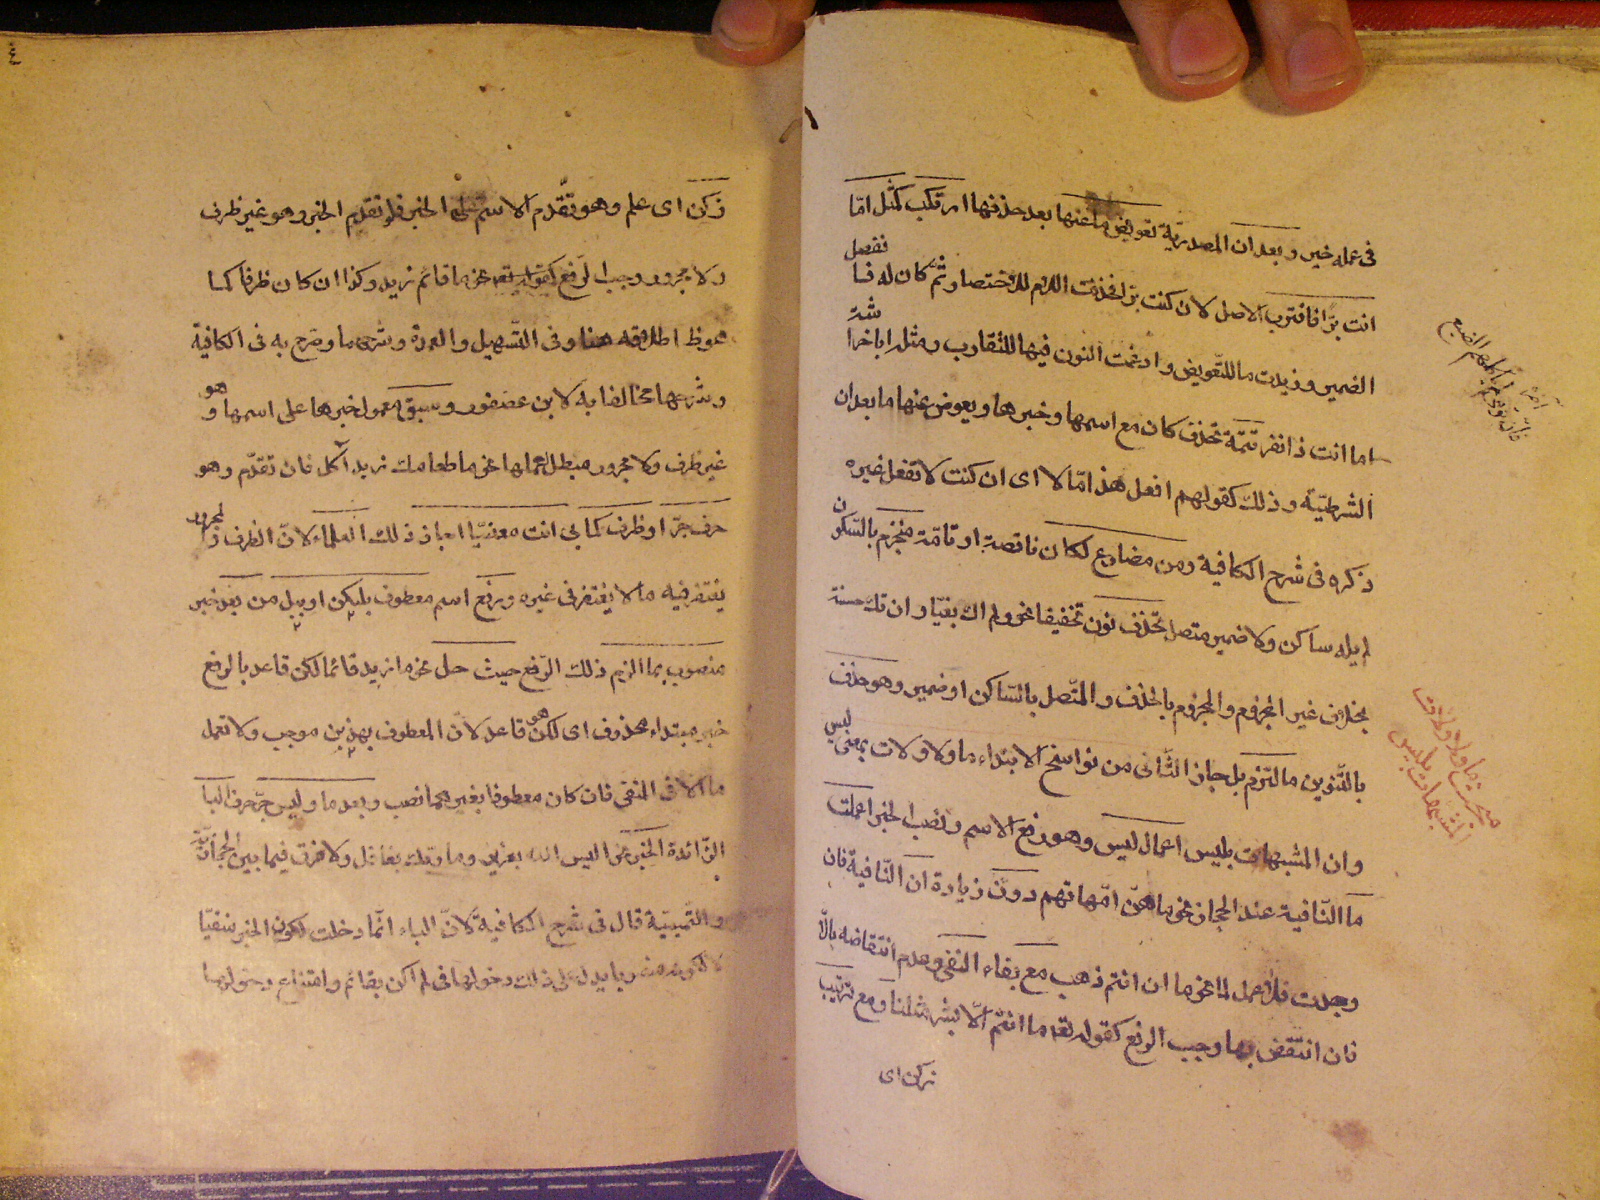 فى عمله خير وبعد ان المصدرية تعويض ما عنها بعد حذفها ارتكب كمثل امّا
انت برّا فاقترب الاصل لان كنت برّا فحذفت اللام للاختصار ثم كان له فا نفصل
الضمير وزيدت ما للتّعويض وادغمت النون فيها للتقارب ومثله ابا خراشة
اما انت ذا نفر تتمّة تحذف كان مع اسمها وخبرها ويعوض عنها ما بعد ان
الشرطيّة وذلك كقولهم افعل هذا امّا لا اى ان كنت لا تفعل غيره
ذكره فى شرح الكافية ومن مضارع لكان ناقصة او تامّة منجزم بالسّكون
لم يله ساكن ولا ضمير متصل تحذف نون تخفيفا نحو ولم اك بغيّا وان تك حسنة
بخلاف غير المجزوم والمجزوم بالحذف والمتّصل بالسّاكن او ضمير وهو حذف
بالتّنوين ما التزم بل جاز الثّانى من نواسخ الابتداء ما ولا ولات بمعنى ليس
وان المشبهات بليس اعمال ليس وهو رفع الاسم ونصب الخبر اعملت
ما النّافية عند الحجاز نحو ما هنّ امّهاتهم دون زيادة ان النّافية فان
وجدت فلا عمل لما نحو ما ان انتم ذهب مع بقاء النفى وعدم انتقاضه بالّا
فان انتقض بها وجب الرفع كقوله تعه ما انتم الّا بشر مثلنا ومع ترتيب
زكن اى
مبحث ما ولا ولات
المشبهات بليس
٤
زكن اى علم وهو تقدّم الاسم على الخبر فلو تقدم الخبر وهو غير ظرف
ولا مجرور وجب الرفع كقوله نحو ما قائم زيد وكذا ان كان ظرفا كما
هو ظ اطلاقه هنا وفى التّسهيل والعمدة وشرحها وصرح به فى الكافية
وشرحها مخالفا به لابن عصفور وسبق معمول خبرها على اسمها وهو
غير ظرف ولا مجرور مبطل لعملها نحو ما طعامك زيد آكل فان تقدّم وهو
حرف جرّ او ظرف كما بى انت معنيّا اجاز ذلك العلماء لانّ الظرف والمجرور
يغتفر فيه ما لا يغتفر فى غيره ورفع اسم معطوف بلكن او ببل من بعد خبر
منصوب بما الزم ذلك الرّفع حيث حل نحو ما زيد قائما لكن قاعد بالرفع
خبر مبتداء محذوف اى لكن هو قاعد لانّ المعطوف بهذين موجب ولا تعمل
ما الا فى المنفى فان كان معطوفا بغيرهما نصب وبعد ما وليس جرّ حرف البا
الزّائدة الخبر نحو اليس الله بعزيز وما ربّك بغافل ولا فرق فيما بين الحجازيّة
والتّميميّة قال فى شرح الكافية لانّ الباء انّما دخلت لكون الخبر منفيّا
لا لكونه منصوبا يدل على ذلك دخولها فى لم اكن بقائم وامتناع دخولها